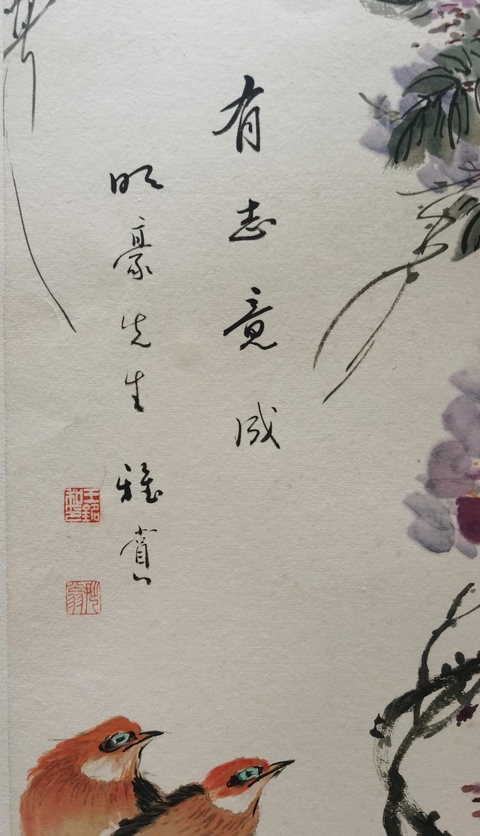 有志竟成
明豪先生雅賞